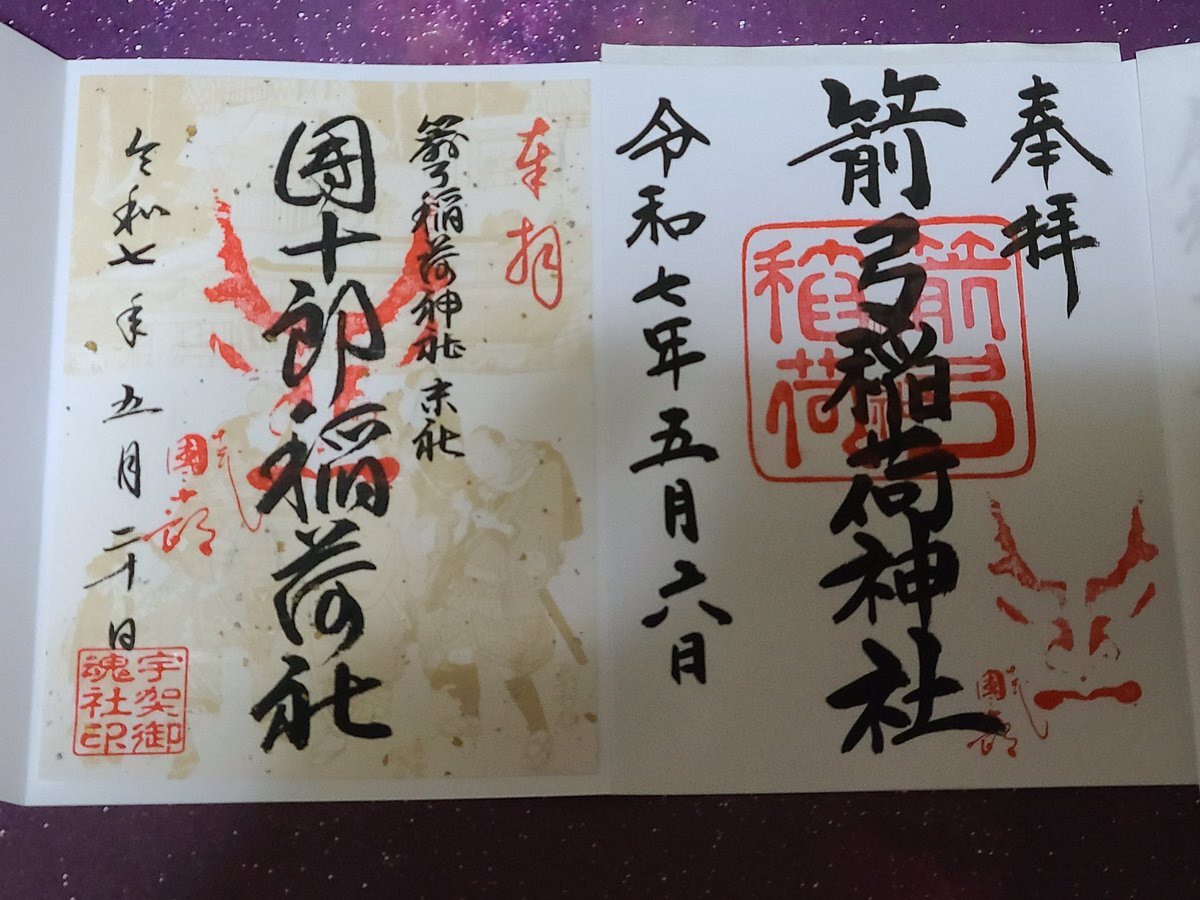 奉拝
箭弓稲荷神社
箭弓
稲荷
令和七年五月六日
奉拝
箭弓稲荷神社 末社
團十郎稲荷社
令和七年五月二十日
宇賀御
魂社印